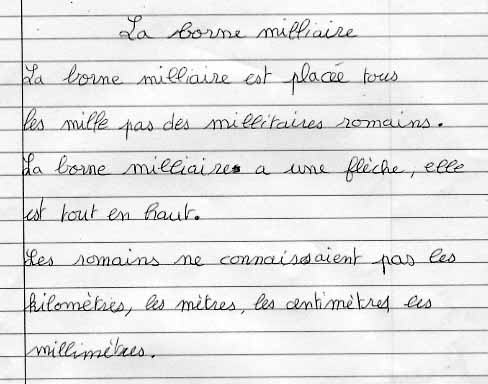 La borne milliaire
La borne milliaire est placée tous
les mille pas des millitaires romains.
La borne milliaires a une flèche, elle
est tout en haut.
Les romains ne connaissaient pas les
kilomètres, les mètres, les centimètres les
millimètres.